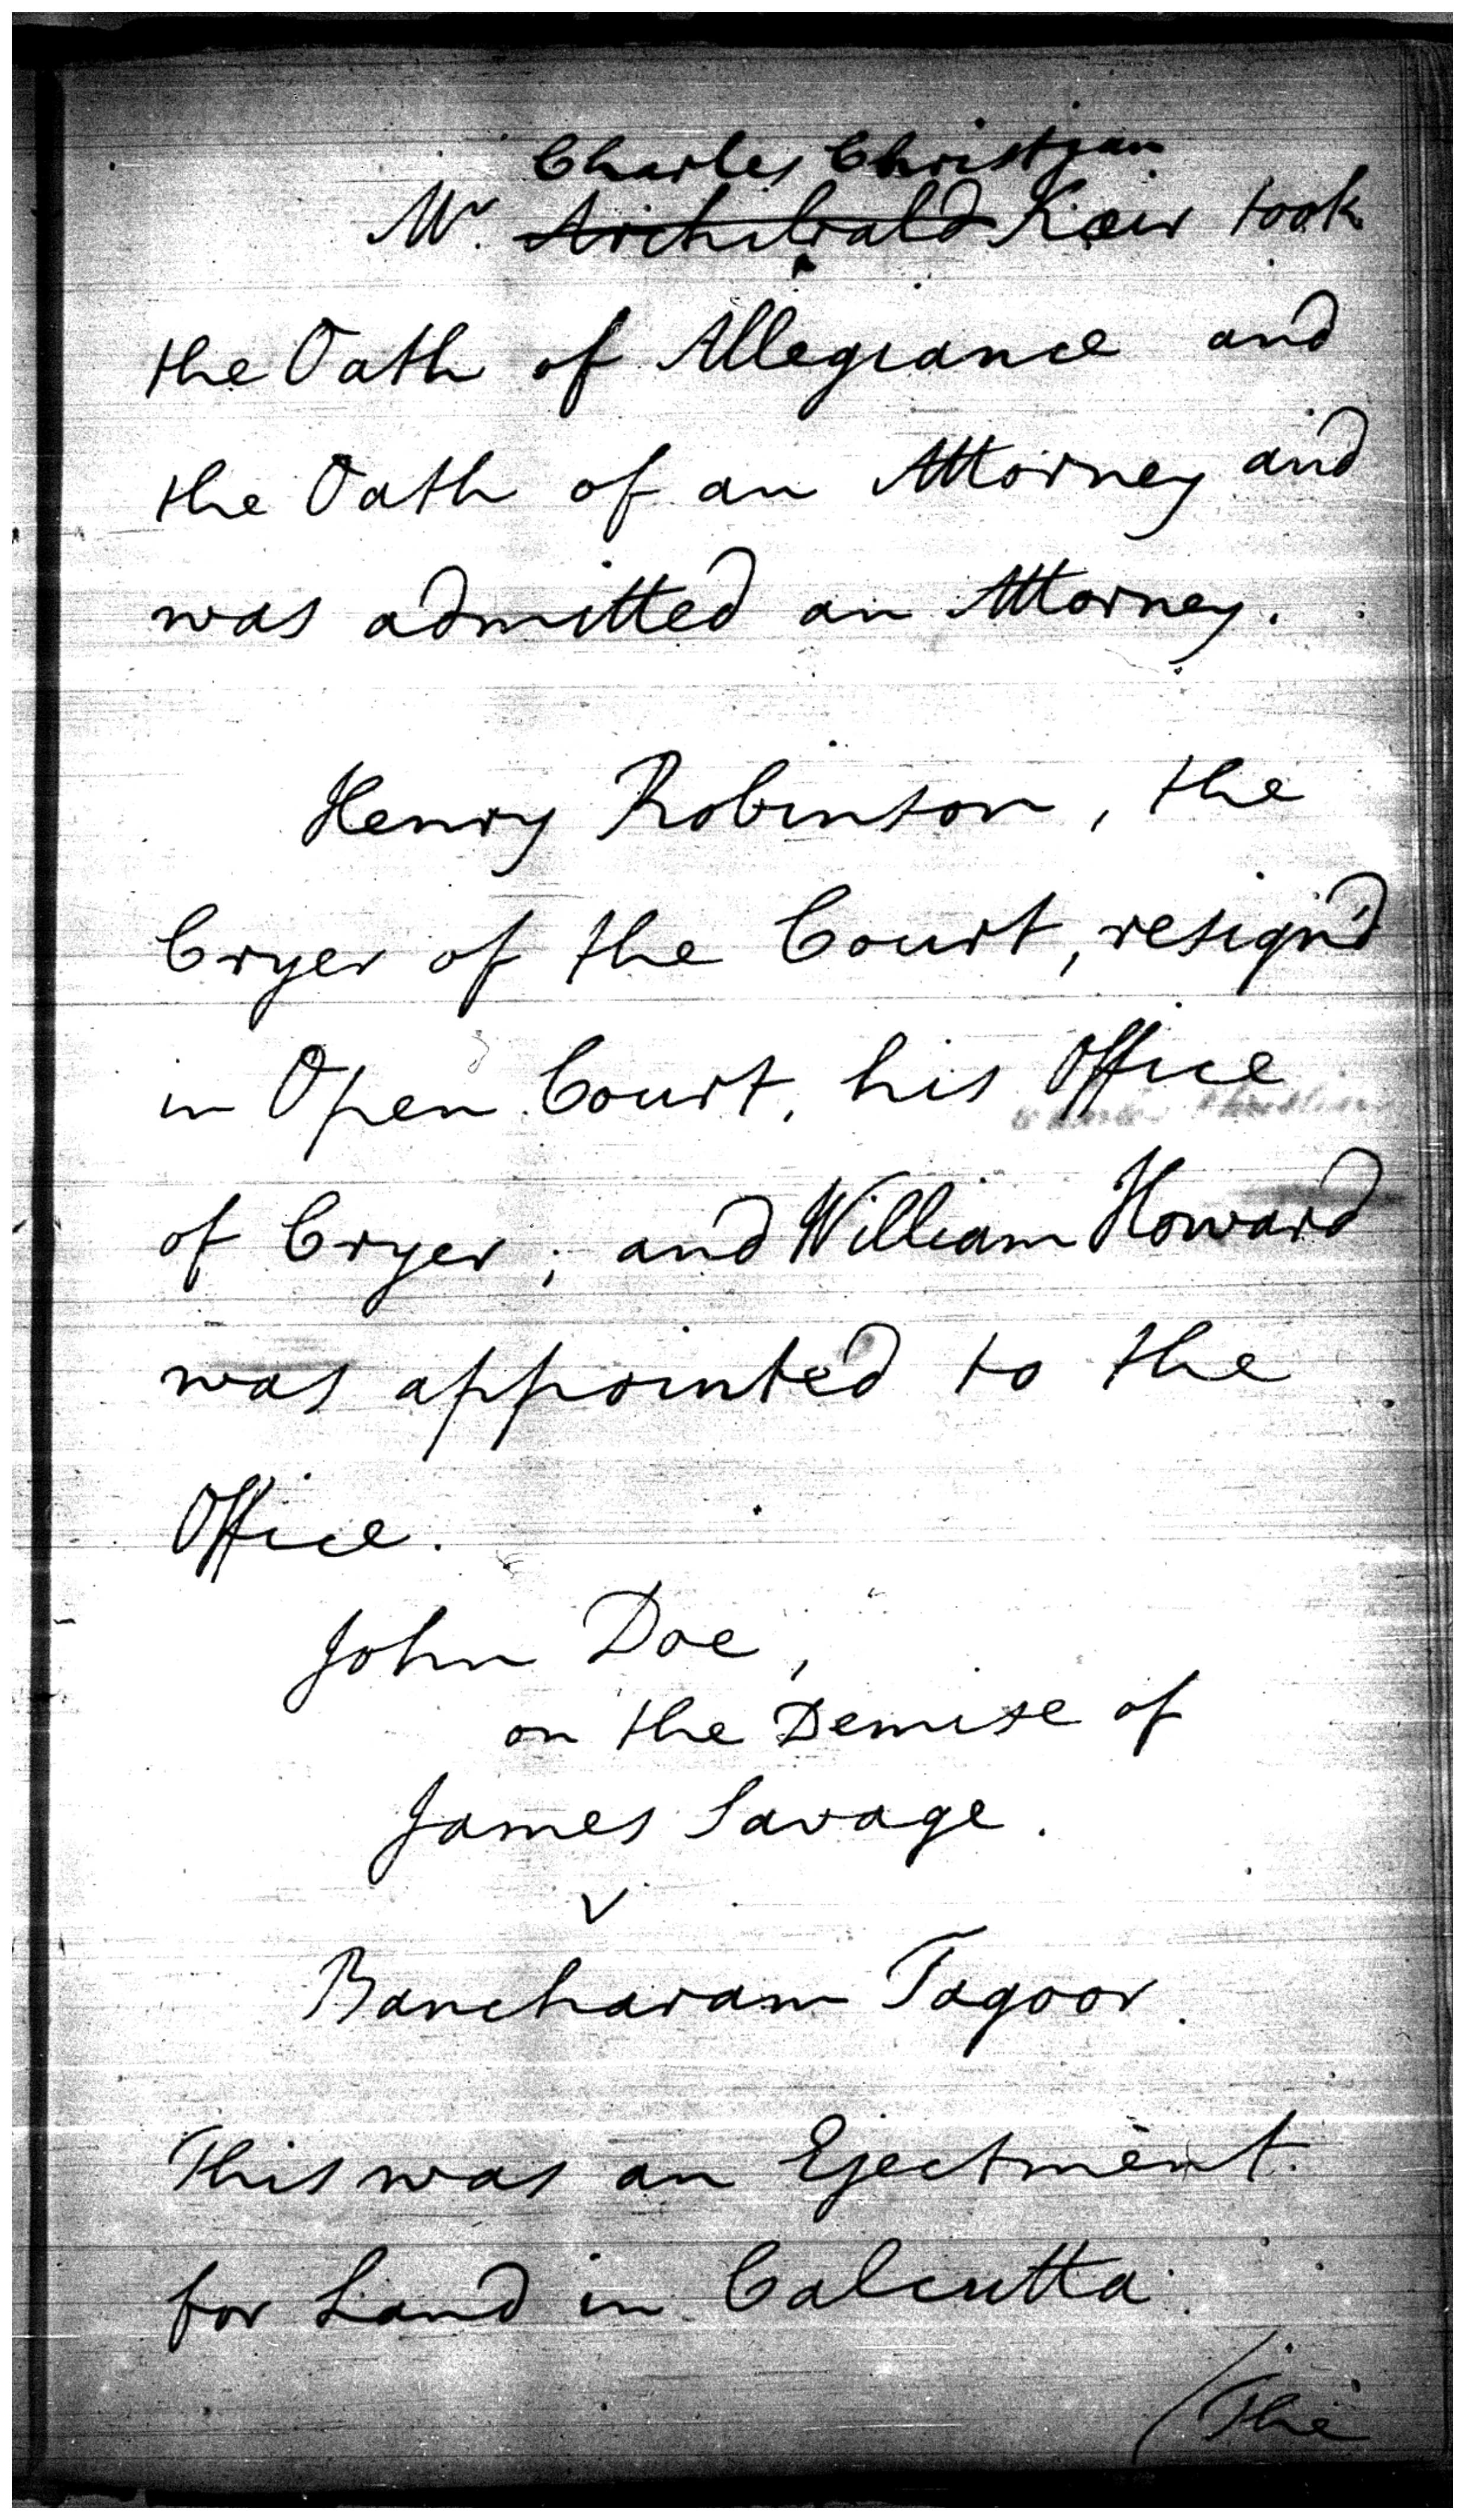 Charles Christian
Mr. Archibald Keir took
the Oath of Allegiance and
the Oath of an Attorney and
was admitted an Attorney.
Henry Robinson, the
Cryer of the Court, resign'd
in Open Court, his Office
of Cryer; and William Howard
was appointed to the
Office.
John Doe,
on the Demise of
James Savage.
v
Bancharam Tagoor.
This was an Ejectment
for Land in Calcutta.
/The